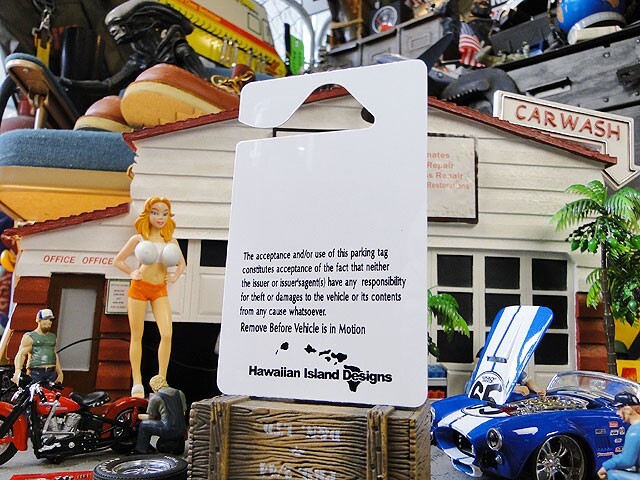 CARWASH
mates
Repair
s Repair
Restorations
OFFICE OFFICE
The acceptance and/or use of this parking tag
constitutes acceptance of the fact that neither
the issuer or issuer'sagent(s) have any responsibility
for theft or damages to the vehicle or its contents
from any cause whatsoever.
Remove Before Vehicle is in Motion
Hawaiian Island Designs